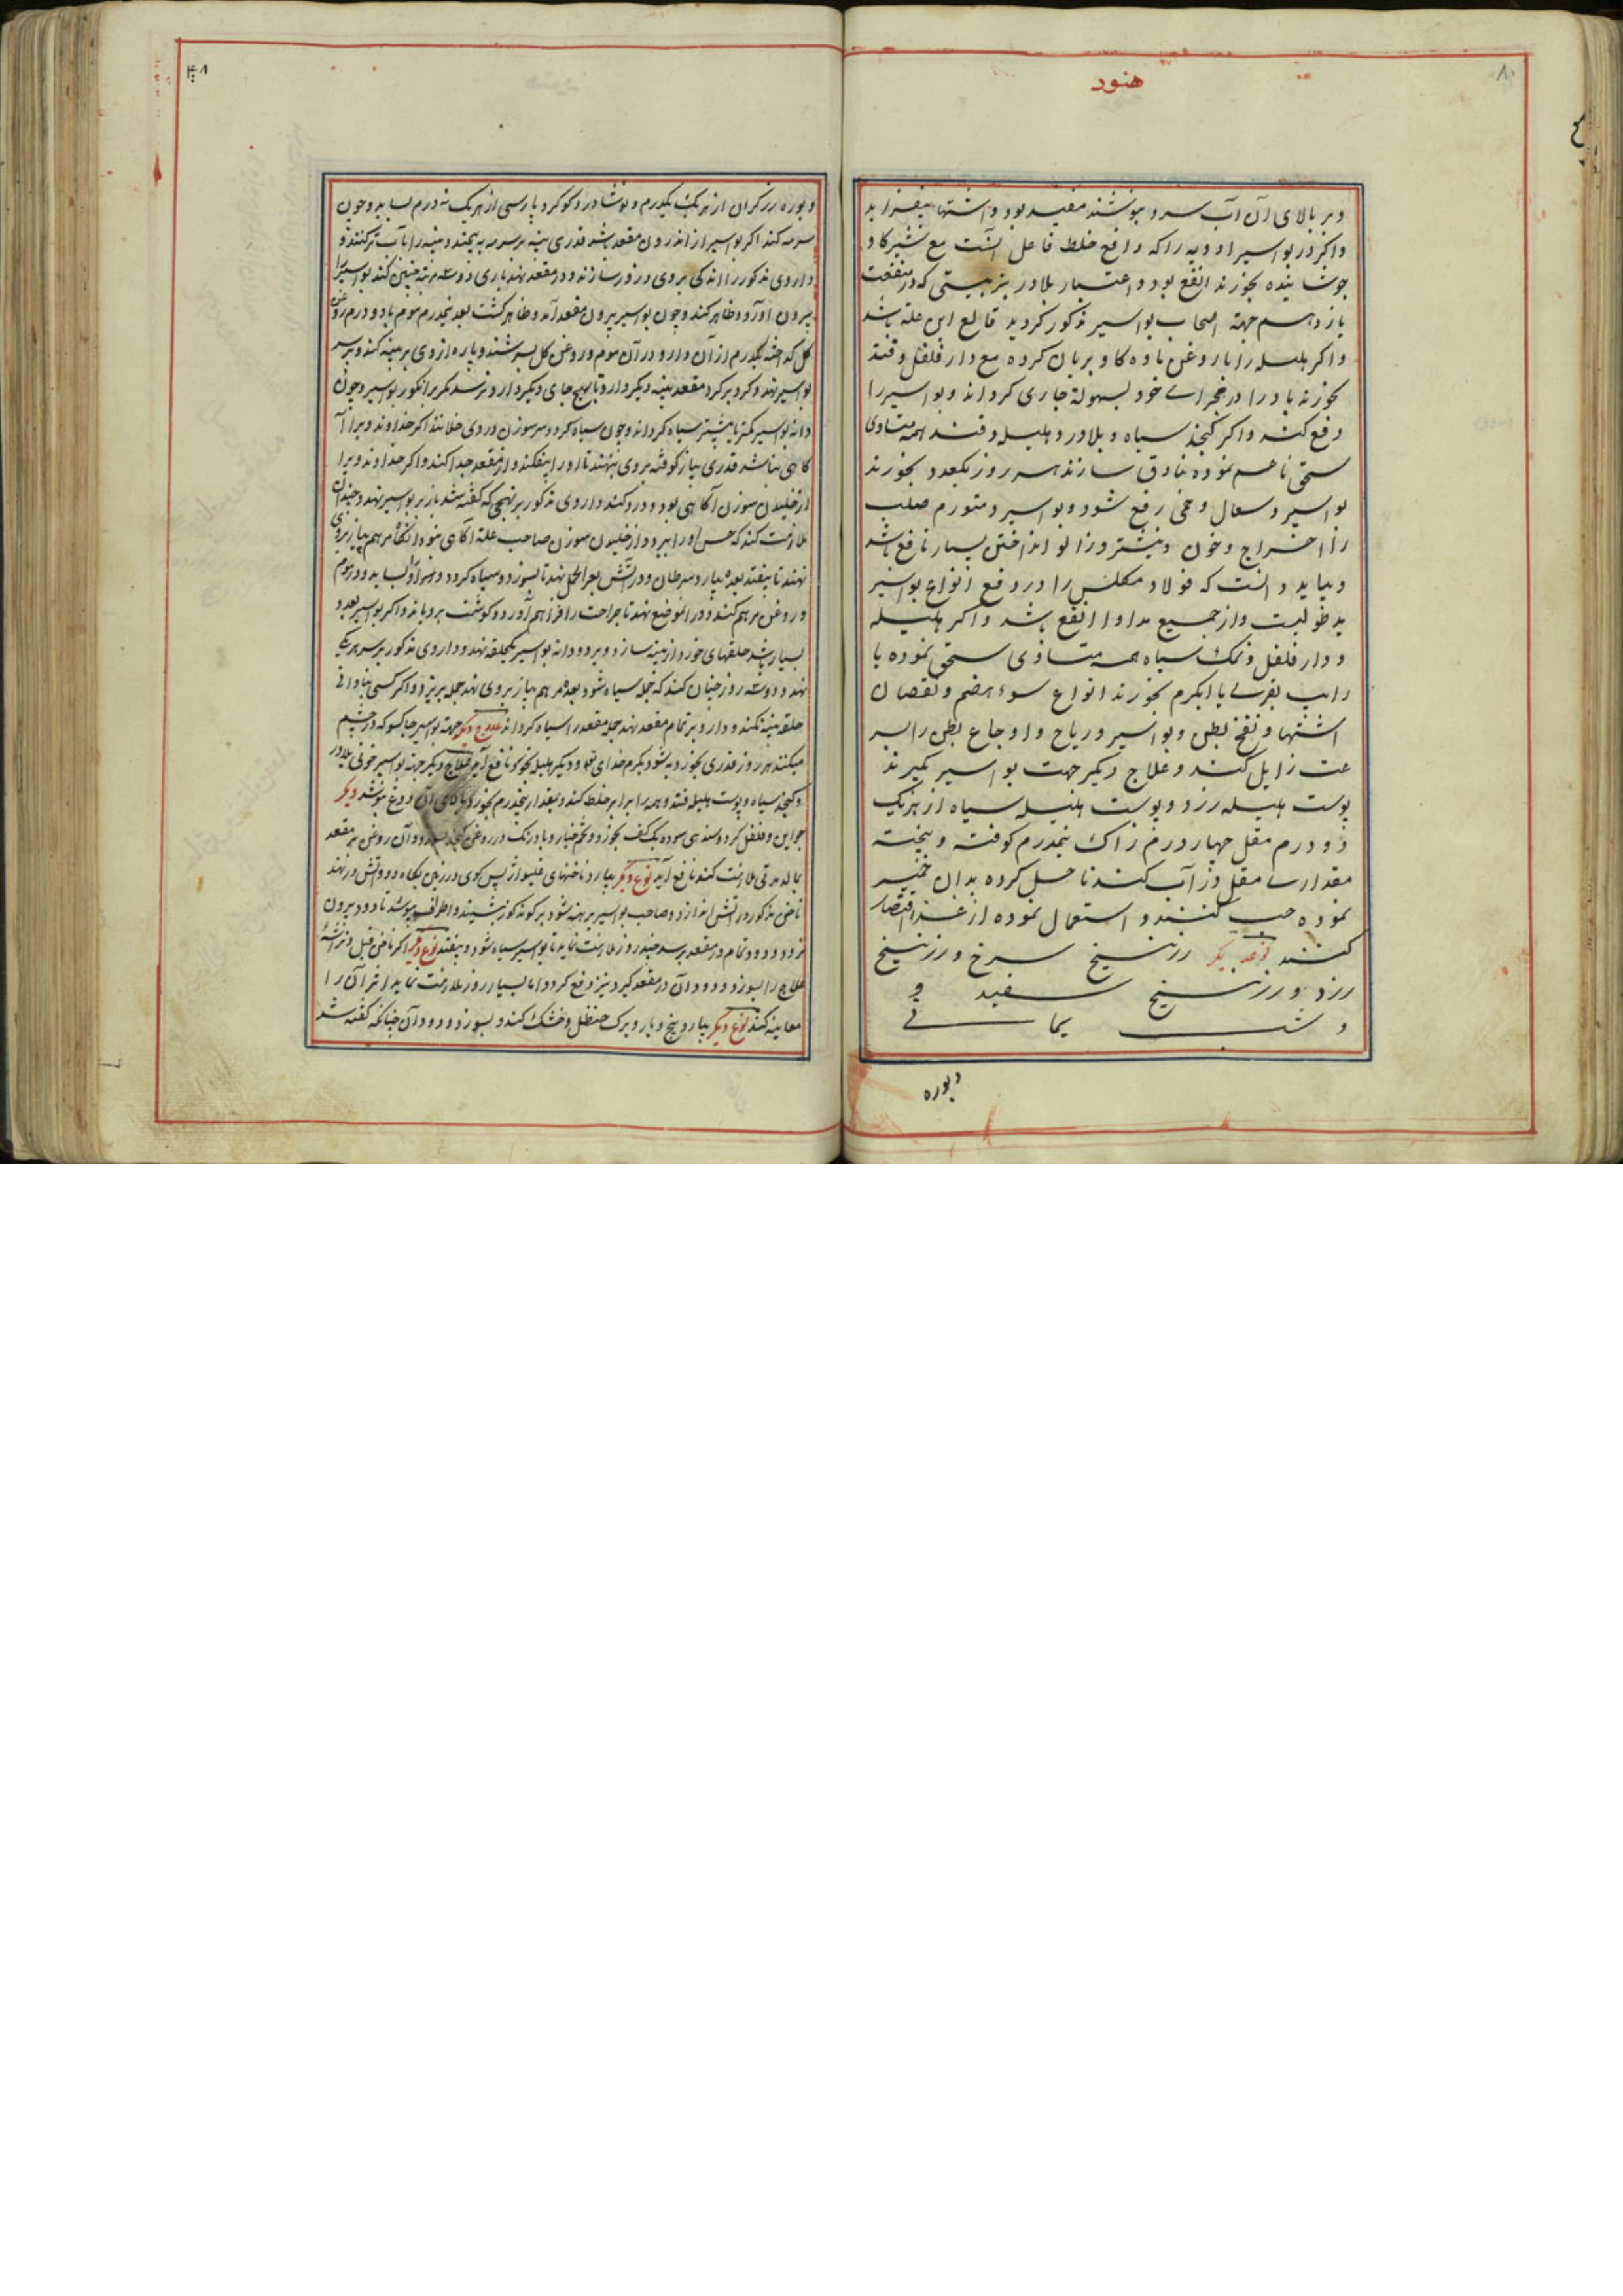 هنود
و بر بالای آن آب سرد بنوشند مفید بود و اشتها بیفزاید
و اکر در بواسیر ادویه را که دافع خلط فاعل آنست مع شیر کاو
جوشانیده بخورند انفع بود و اعتبار بلادر بترتیبتی که در منفعت
یازدهم جهة اصحاب بواسیر مذکور کردید قالع این علة باشد
و اکر هلیله را با روغن ماده کاو بریان کرده مع دار فلفل و قند
بخورند باد را در مجرای خود بسهولة جاری کرداند و بواسیر را
دفع کند و اکر کنجد سیاه و بلادر و هلیله و قند همه متساوی
سحق ناعم نموده بنادق سازند هر روز یکعدد بخورند
بواسیر و سعال و حمی رفع شود و بواسیر و متورم صلب
را اخراج و خون و نیشتر و زالو انداختن بسیار نافع باشد
و بباید دانست که فولاد مکلس را در دفع انواع بواسیر
ید طولیست و از جمیع مداوا انفع باشد و اکر هلیله
و دار فلفل و نمک سیاه همه متساوی سحق نموده با
رایب بقری یا آبکرم بخورند انواع سوء هضم و نقصان
اشتها و نفخ بطن و بواسیر و ریاح و اوجاع بطن را بسر
عت زایل کند و علاج دیکر جهت بواسیر بکیرند
پوست هلیله زرد و پوست هلیله سیاه از هر یک
دو درم مقل چهار درم زاک پنجدرم کوفته و بیخته
مقداری مقل در آب کنند تا حل کرده بدان خمیر
نموده حب کنند و استعمال نموده از غذا اقتصار
کنند نوعدیکر زرنیخ سرخ و زرنیخ
زرد و زرنیخ سفید و
و شب یمانی
و بوره
و بوره زرکران از هر یک یکدرم و نوشادر و کوکرد پارسی از هر یک نه درم بساید و چون
سرمه کند اکر بواسیر از اندرون مقعد باشد قدری پنبه بر سرمه به پیچند و پنبه را بآب تر کنند و
داروی مذکور را اندکی بروی درزور سازند و در مقعد نهند باری دو سه مرتبه چنین کند بواسیر را
بیرون آورد و ظاهر کند و چون بواسیر بیرون مقعد آمد و ظاهر کشت بعد پنجدرم موم با دو درم روغن
کل کداخته یکدرم از آن دارو در آن موم و روغن کل بسرشند و پاره از وی بر پنبه کند و بر سر
بواسیر نهد و کرد بر کرد مقعد پنبه دیکر دارد تا بهیچ جای دیکر دارو نرسد مکر بر انکور بواسیر و چون
دانه بواسیر کمتر یا بیشتر سیاه کرداند و چون سیاه کردد سر سوزن در وی خلانند اکر خداوند ویرا آ
کاهی نباشد قدری پیاز کوفته بروی بنهند تا او را بیفکند و از مقعد جدا کند و اکر خداوند ویرا
از خلیدن سوزن آکاهی بود و درد کند داروی مذکور بر نهجی که کفته شد باز بر بواسیر نهد و چندان
ملازمت کند که حس او را ببرد و از خلیدن سوزن صاحب علة آکاهی نبود آنکاه مرهم پیاز بروی
نهند تا بیفتد بعده بیارد سرطان و در آتش بعر الجمل نهد تا بسوزد و سیاه کردد و بساید و در موم
و روغن مرهم کند و در آنموضع نهد تا جراحت را فراهم آورد و کوشت برویاند و اکر بواسیر بعدد
بسیار باشد حلقهای خورد از پنبه سازد و بر دو دانه بواسیر یکحلقه نهد و داروی مذکور بر سر هر یک
نهد و دو سه روز چنان کند که جمله سیاه شود بعده مرهم پیاز بروی نهد جمله بریزد و اکر کسی بنادانی
حلقه پنبه نکند و دارو بر تمام مقعد نهد جمله مقعد را سیاه کرداند علاج دیکر جهة بواسیر چاکسو که در چشم
میکنند هر روز قدری بخورد و هلیله بخورد نافع آید علاج دیکر جهة بواسیر خونی بلادر
و کنجد سیاه و پوست هلیله و قند و همه برابر برابر خلط کند و بمقدار پنجدرم بخورد و بالای آن دوغ بنوشد دیکر
جواین و فلفل کرد و سندهی سوده یک کف بخورد و تخم خیار و بادرنک در روغن کنجد بسوزد و آن روغن بر مقعد
بمالد مدتی ملازمت کند نافع آید نوع دیکر بیارد ناخنهای فلیواز پس کوی در زمین بکاود و آتش در نهند
ناخن مذکور در آتش اندازد و صاحب بواسیر برهنه شود بر کو مذکور بنشیند و اطراف بپوشد تا دود بیرون
نرود و دود تمام در مقعد برسد چند روز ملازمت نماید تا بواسیر سیاه شود و بیفتد نوع دیکر اکر ناخن فیل و تراشه
علاج را بسوزد و دود آن در مقعد کیرد نیز دفع کردد اما بسیار روز ملازمت نماید اثر آن را
معاینه کند نوع دیکر بیارد بیخ و بار و برک حنظل و خشک کند و بسوزد و دود آن چنانکه کفته شد